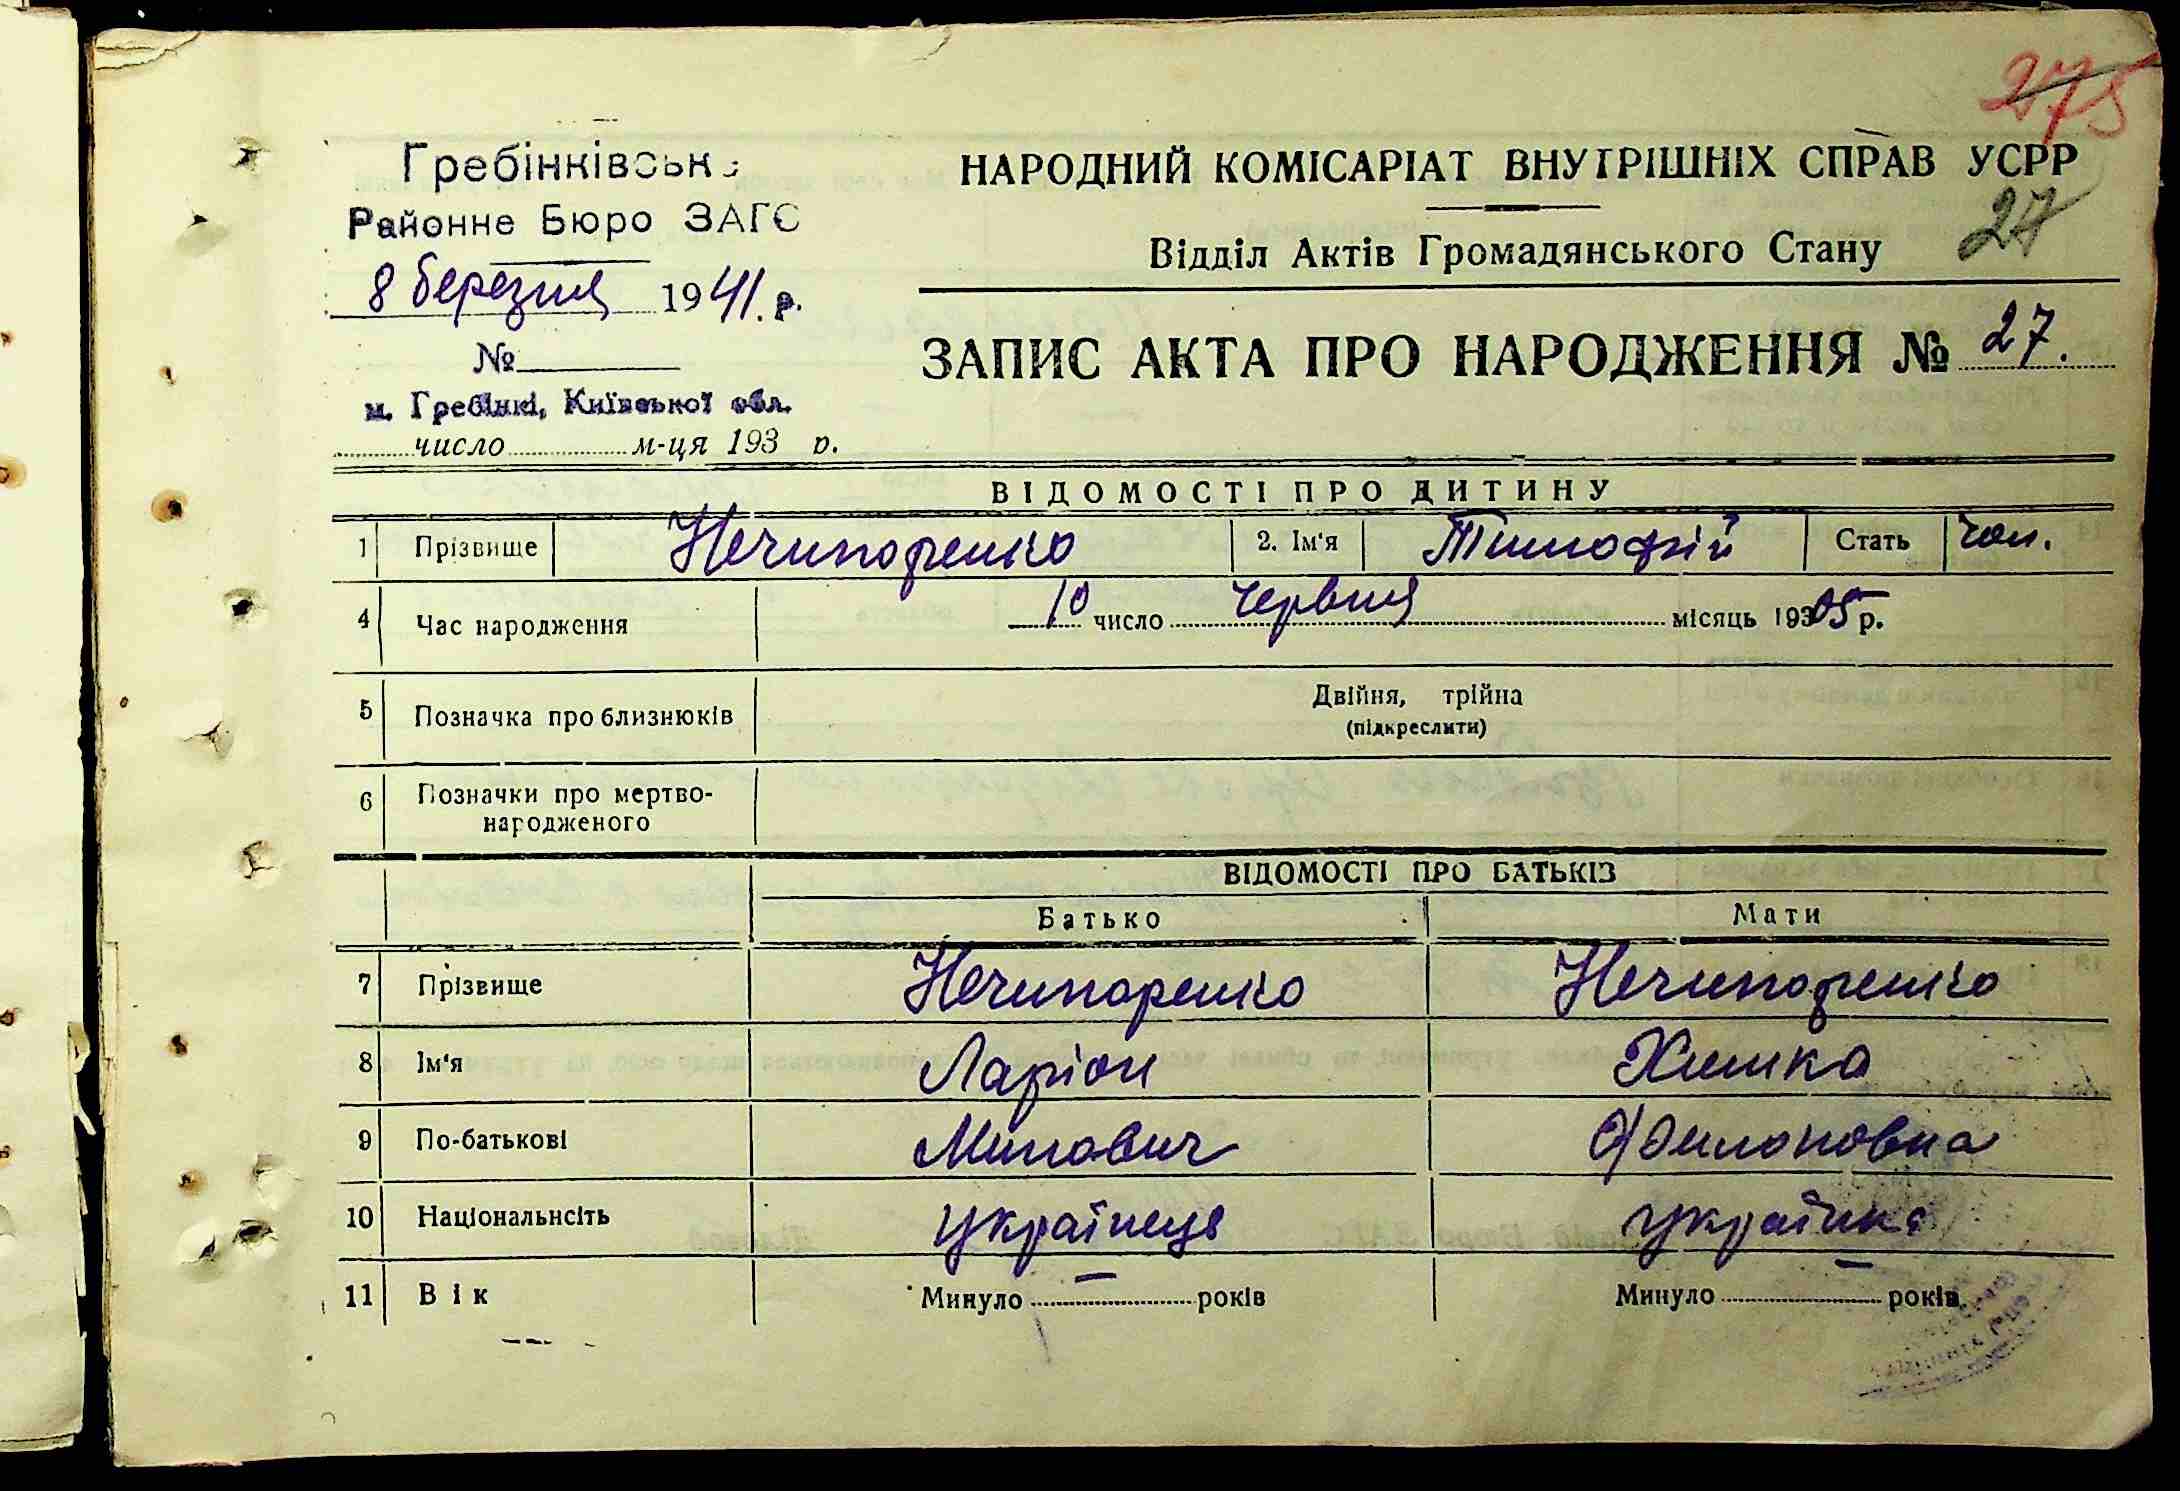 275
Гребінківськ
НАРОДНИЙ КОМІСАРІАТ ВНУТРІШНІХ СПРАВ УСРР
Районне Бюро ЗАГС
27
Відділ Актів Громадянського Стану
8 березня 1941. р.
№
ЗАПИС АКТА ПРО НАРОДЖЕННЯ № 27.
м. Гребінкі, Київської обл.
число м-ця 193 р.
ВІДОМОСТІ ПРО ДИТИНУ
1 Прізвище Нечипоренко 2. Ім'я Тимофій Стать чол.
4 Час народження 10 число червня місяць 19305 р.
5 Позначка про близнюків Двійня, трійна
(підкреслити)
6 Позначки про мертво-
народженого
ВІДОМОСТІ ПРО БАТЬКІВ
Батько Мати
7 Прізвище Нечипоренко Нечипоренко
8 Ім'я Ларіон Химка
9 По-батькові Минович Филоновна
10 Національнсіть українець українка
11 Вік Минуло — років Минуло — років